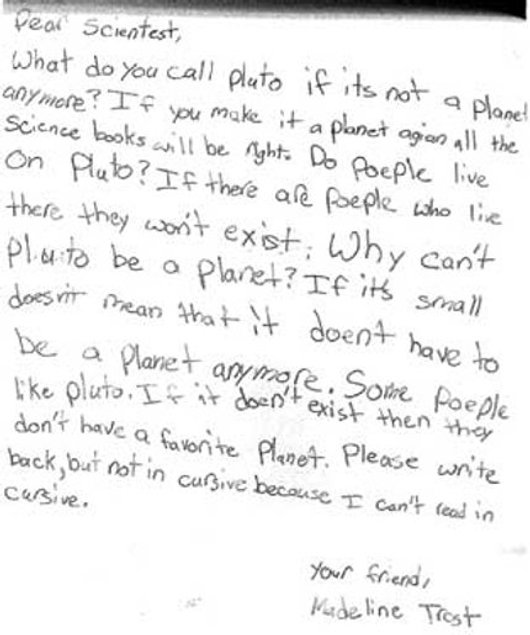 Dear Scientest,
What do you call pluto if its not a planet
anymore? If you make it a planet agian all the
Science books will be right. Do Poeple live
on Pluto? If there are Poeple who live
there they won't exist. Why can't
Pluto be a Planet? If it's small
doesn't mean that it doen't have to
be a Planet anymore. Some Poeple
like pluto. If it doen't exist then they
don't have a favorite Planet. Please write
back, but not in cursive because I can't read in
cursive.
Your friend,
Madeline Trost